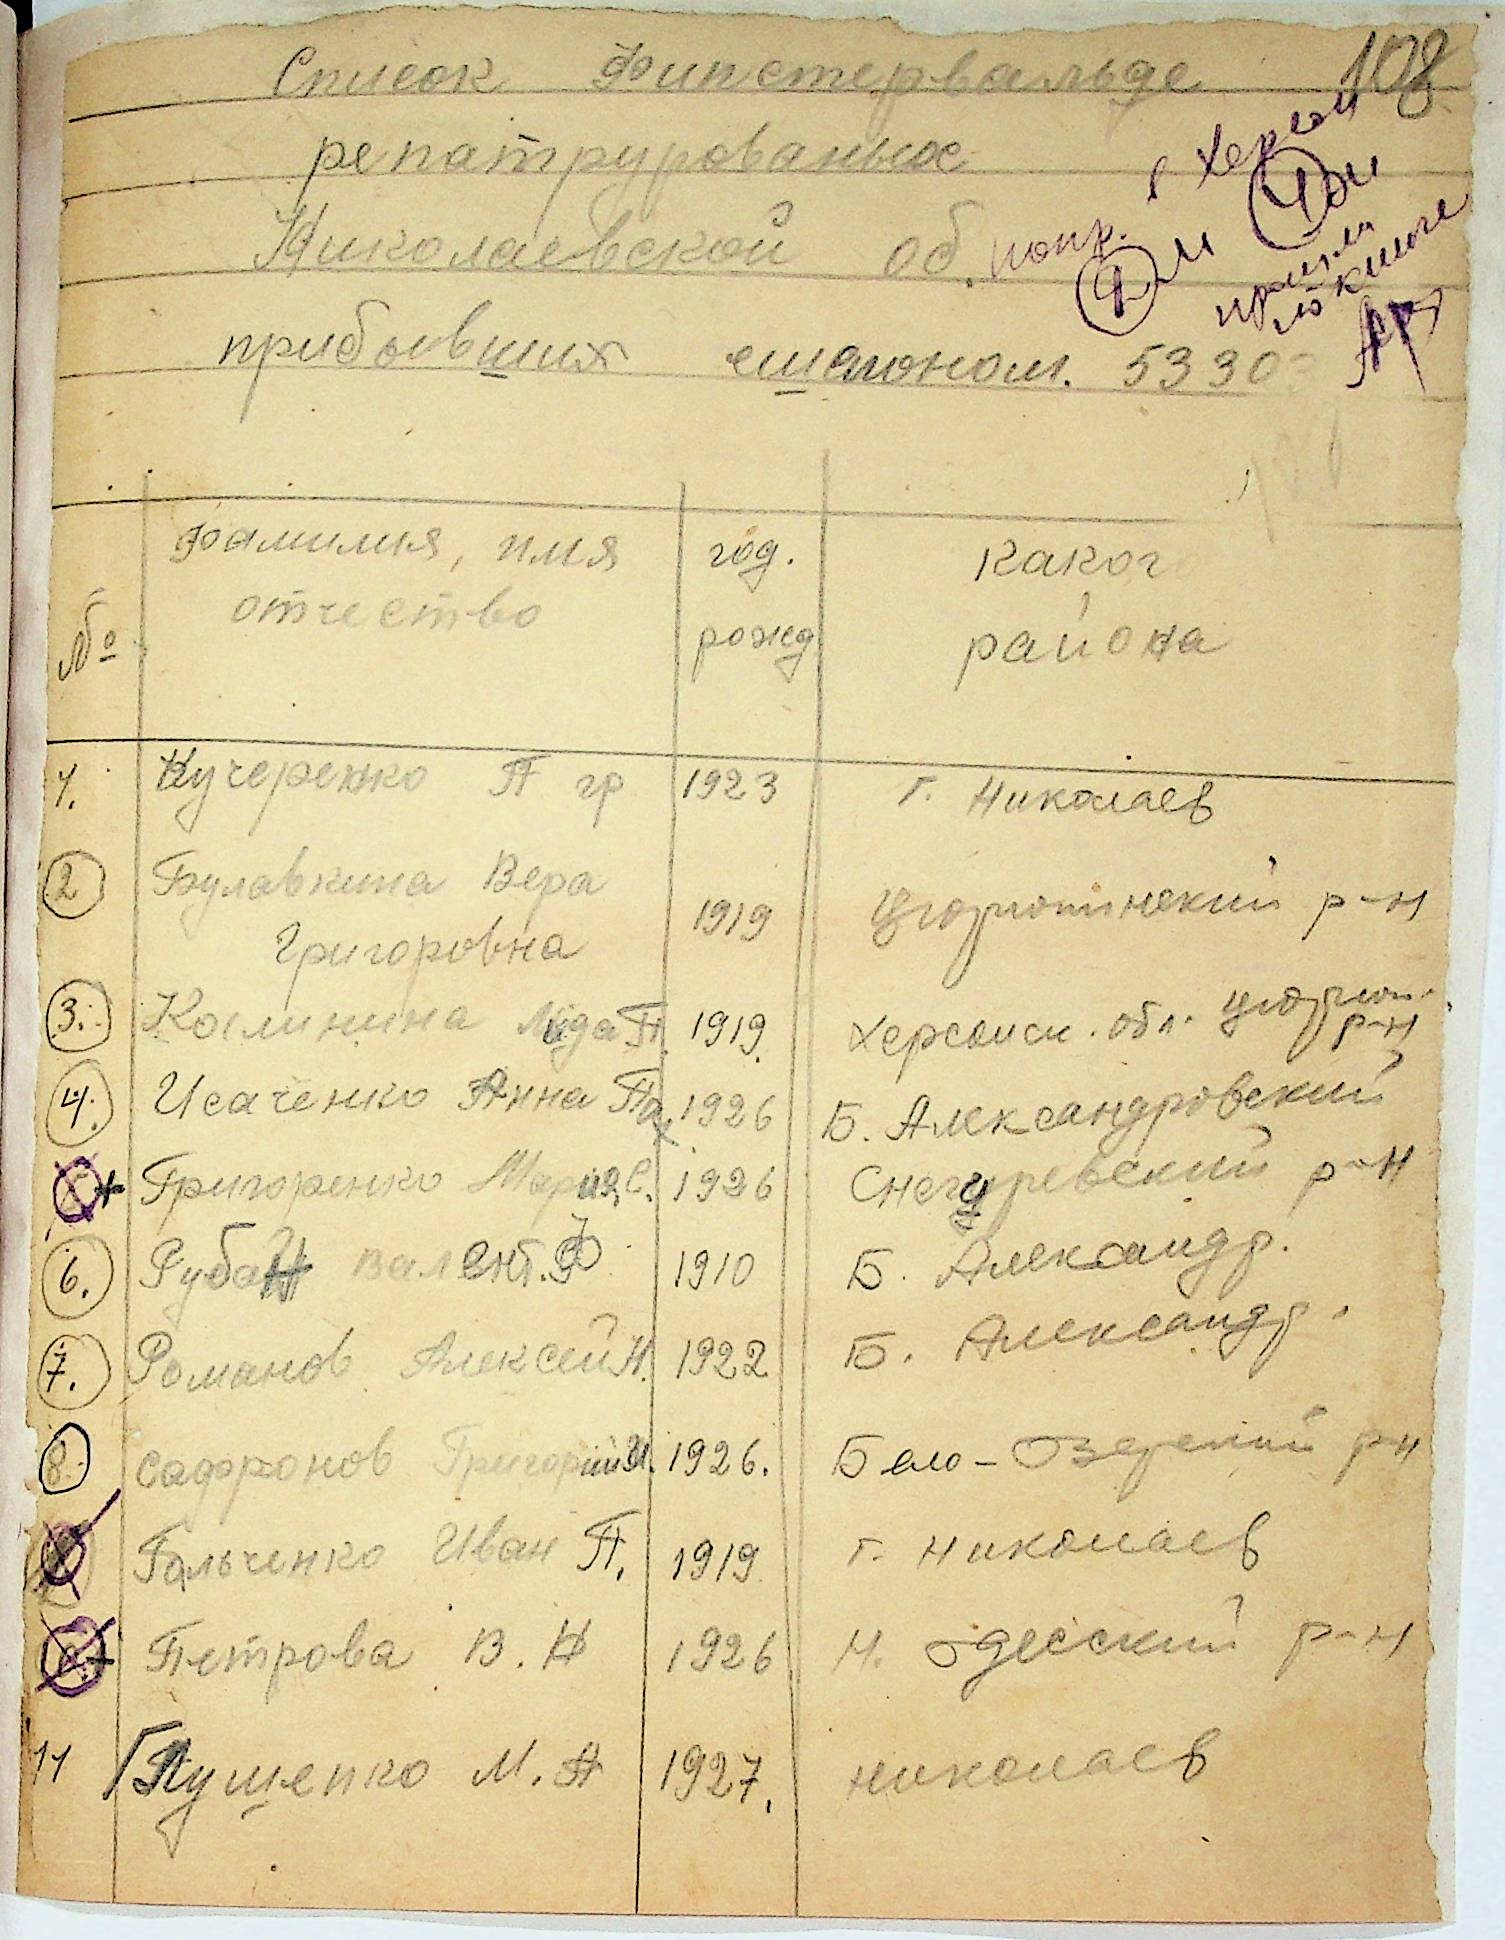 108
Список Финстервальде
репатрурованных
Николаевской об.
прибывших ешалоном. 5330
г Херсон
№ Фамилия, имя отчество год. рожд каког района
1. Кучеренко П гр 1923 г. Николаев
2 Булавкина Вера
Григоровна 1919 Цюрюпинский р-н
3. Калинина Лида П. 1919. Херсонск. обл. Цюрюп. р-н
4. Исаченко Анна Па 1926 Б. Александровский
Григоренко Мария С. 1926 Снегуревский р-н
6. Рубан Валент. Ф 1910 Б. Александр.
7. Романов Алексей Н. 1922 Б. Александр.
8 Сафронов Григорий И. 1926. Бело-Озерский р-н
Гальченко Иван П. 1919 г. Николаев
Петрова В. Н 1926 Н. Одесский р-н
11 Лущенко М. А 1927. Николаев